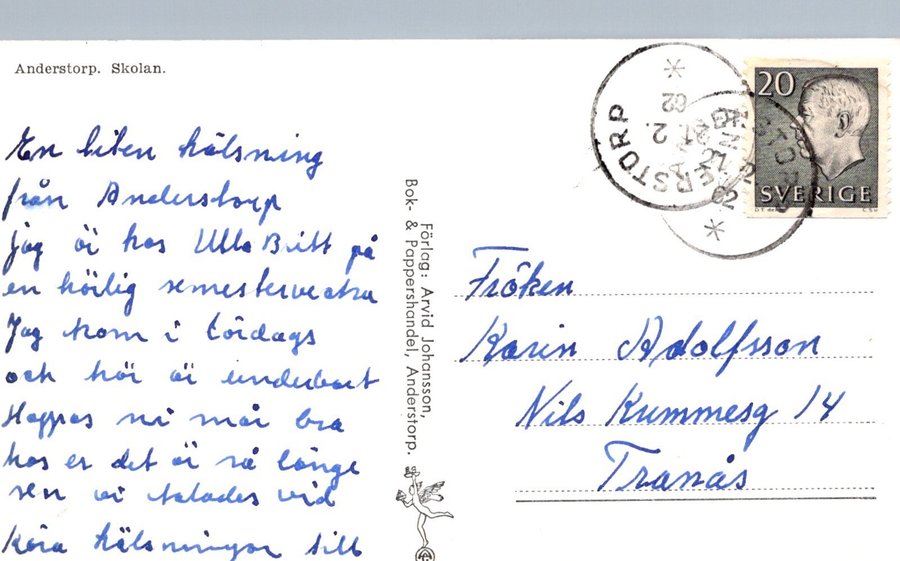 Anderstorp. Skolan.
En liten hälsning
från Anderstorp
Jag är hos Ulla Britt på
en härlig semestervecka
Jag kom i lördags
och här är underbart
Hoppas ni mår bra
hos er det är så länge
sen vi talades vid
Kära hälsningar till
Förlag: Arvid Johansson,
Bok- & Pappershandel, Anderstorp.
20
SVERIGE
ANDERSTORP
62
Fröken
Karin Adolfsson
Nils Kummesg 14
Tranås